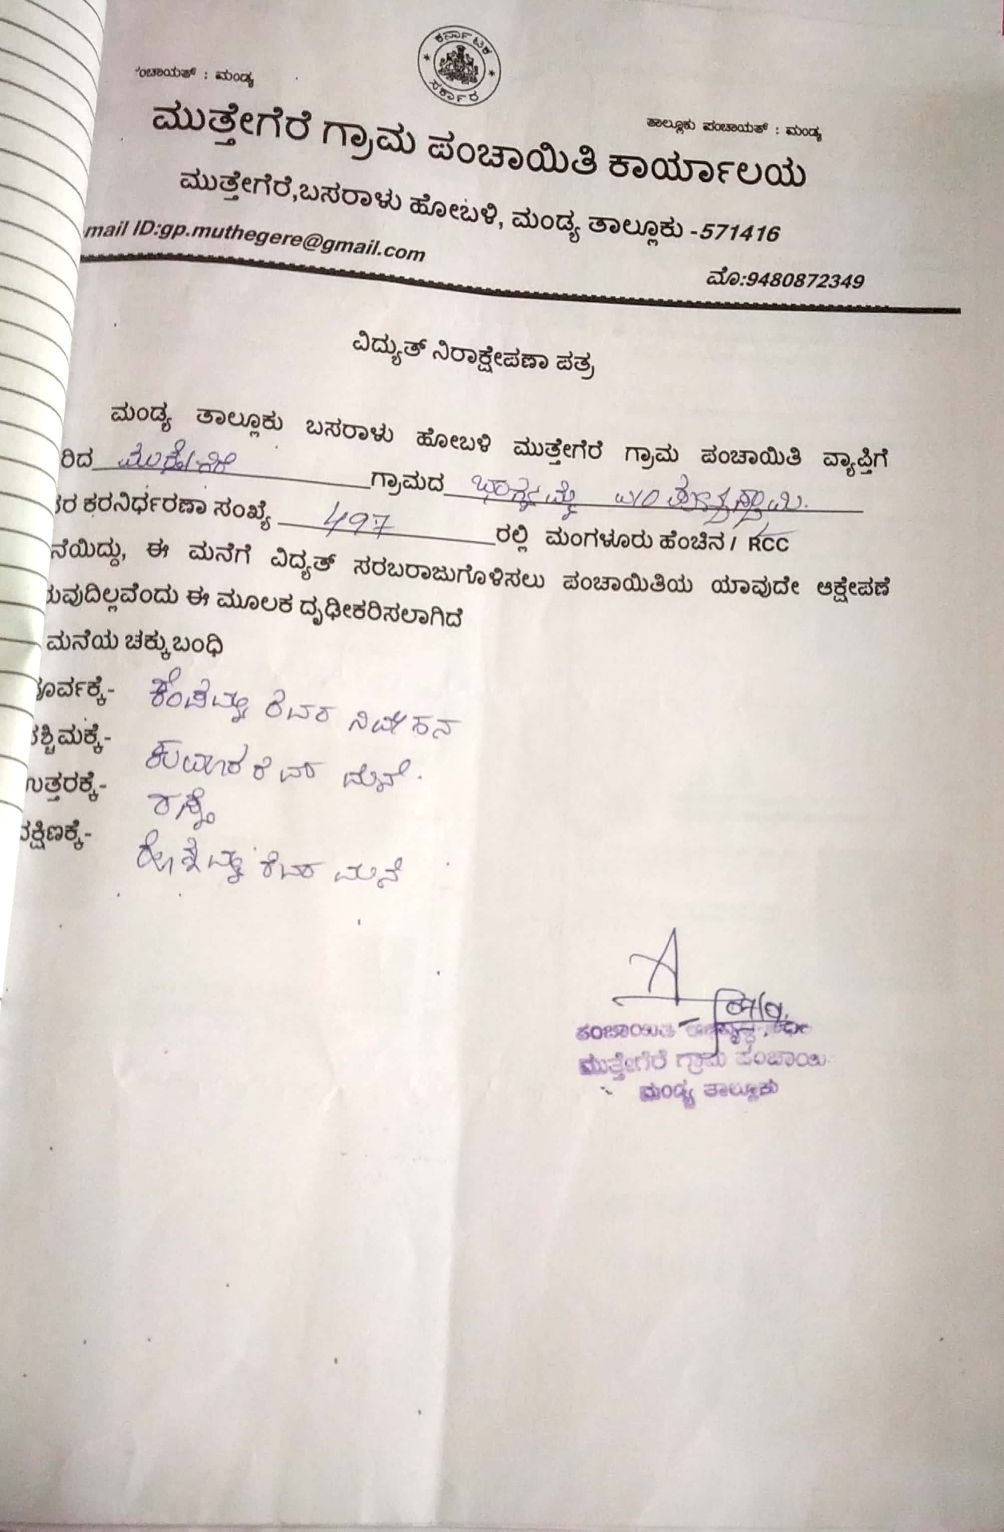 ಕರ್ನಾಟಕ ಸರ್ಕಾರ
ಂಚಾಯತ್ : ಮಂಡ್ಯ
ತಾಲ್ಲೂಕು ಪಂಚಾಯತ್ : ಮಂಡ್ಯ
ಮುತ್ತೇಗೆರೆ ಗ್ರಾಮ ಪಂಚಾಯಿತಿ ಕಾರ್ಯಾಲಯ
ಮುತ್ತೇಗೆರೆ,ಬಸರಾಳು ಹೋಬಳಿ, ಮಂಡ್ಯ ತಾಲ್ಲೂಕು -571416
mail ID:gp.muthegere@gmail.com
ಮೊ:9480872349
ವಿದ್ಯುತ್ ನಿರಾಕ್ಷೇಪಣಾ ಪತ್ರ
ಮಂಡ್ಯ ತಾಲ್ಲೂಕು ಬಸರಾಳು ಹೋಬಳಿ ಮುತ್ತೇಗೆರೆ ಗ್ರಾಮ ಪಂಚಾಯಿತಿ ವ್ಯಾಪ್ತಿಗೆ
ರಿದ ಗ್ರಾಮದ ಭಾಗ್ಯಮ್ಮ
ಕರನಿರ್ಧರಣಾ ಸಂಖ್ಯೆ 497 ರಲ್ಲಿ ಮಂಗಳೂರು ಹೆಂಚಿನ / RCC
ನೆಯಿದ್ದು, ಈ ಮನೆಗೆ ವಿದ್ಯತ್ ಸರಬರಾಜುಗೊಳಿಸಲು ಪಂಚಾಯಿತಿಯ ಯಾವುದೇ ಆಕ್ಷೇಪಣೆ
ುವುದಿಲ್ಲವೆಂದು ಈ ಮೂಲಕ ದೃಢೀಕರಿಸಲಾಗಿದೆ
ಮನೆಯ ಚಕ್ಕುಬಂಧಿ
ೂರ್ವಕ್ಕೆ- ರವರ ನಿವೇಶನ
ಶ್ಚಿಮಕ್ಕೆ- ಮನೆ.
ಉತ್ತರಕ್ಕೆ- ರಸ್ತೆ
ಕ್ಷಿಣಕ್ಕೆ- ರವರ ಮನೆ
ಪಂಚಾಯಿತಿ
ಮುತ್ತೇಗೆರೆ ಗ್ರಾಮ ಪಂಚಾಯಿ
ಮಂಡ್ಯ ತಾಲ್ಲೂಕು